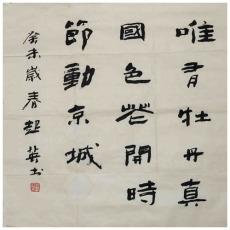 唯有牡丹真
國色花開時
節動京城
癸未歲春趙英書